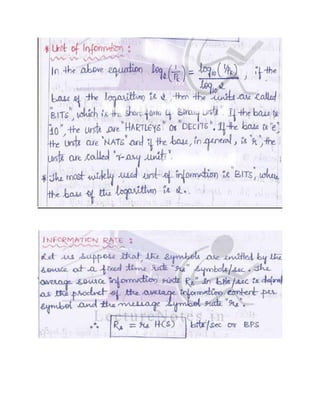 * Unit of Information :
In the above equation log₂(1/Pₖ) = log₁₀(1/Pₖ) / log₁₀2 , if the
base of the logarithm is 2, then the units are called
"BITS", which is the short form of Binary units. If the base is
"10", the units are "HARTLEYS" or "DECITS". If the base is "e",
the units are "NATS" and if the base, in general, is "r", the
units are called "r-ary units".
* The most widely used unit of information is "BITS", where
the base of the logarithm is 2.
INFORMATION RATE :
Let us suppose that the symbols are emitted by the
source at a fixed time rate "rs" symbols/sec. The
average source information rate "Rs" in bits/sec is defined
as the product of the average information content per
symbol and the message symbol rate "rs".
∴ Rs = rs H(S) bits/sec or BPS
LectureNotes.in